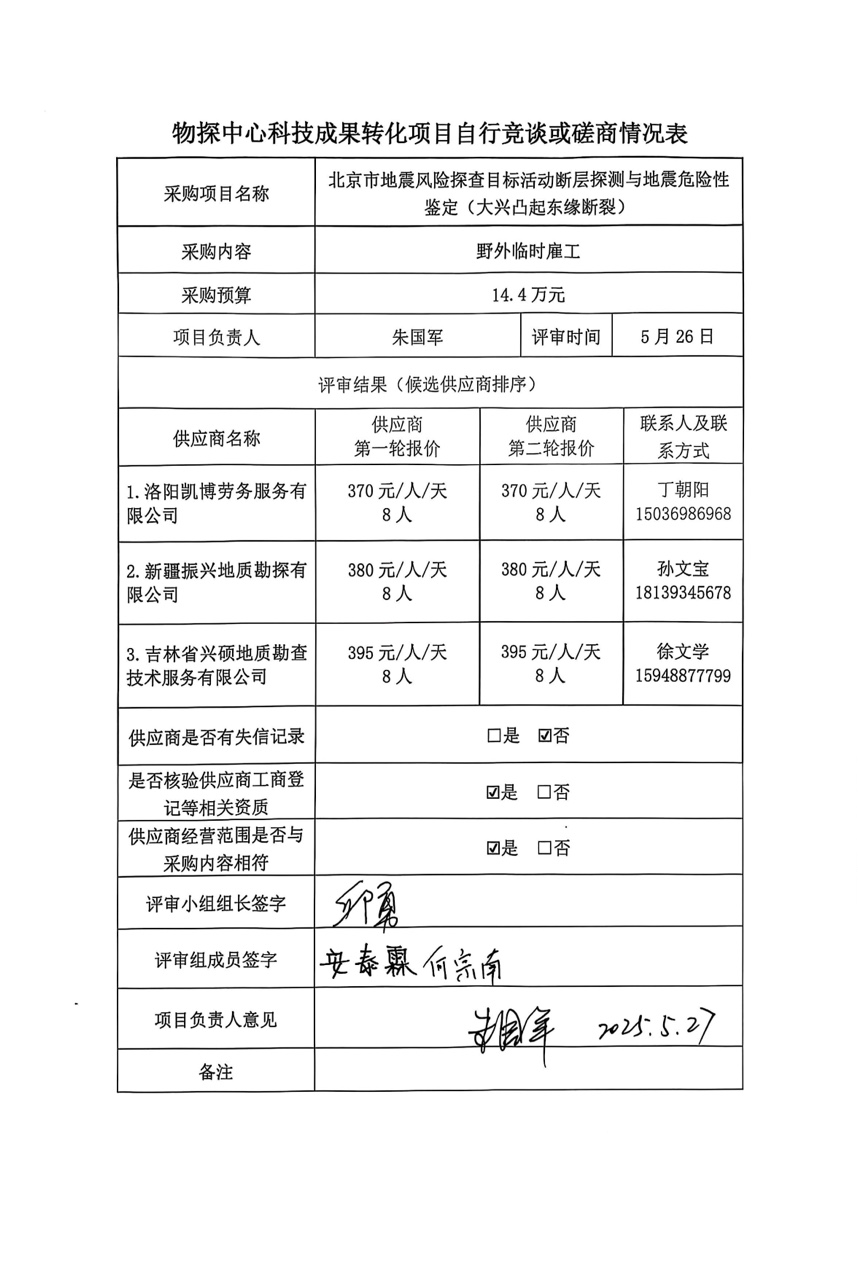 物探中心科技成果转化项目自行竞谈或磋商情况表
采购项目名称
北京市地震风险探查目标活动断层探测与地震危险性
鉴定（大兴凸起东缘断裂）
采购内容
野外临时雇工
采购预算
14.4万元
项目负责人
朱国军
评审时间
5月26日
评审结果（候选供应商排序）
供应商名称
供应商
第一轮报价
供应商
第二轮报价
联系人及联
系方式
1.洛阳凯博劳务服务有
限公司
370元/人/天
8人
370元/人/天
8人
丁朝阳
15036986968
2.新疆振兴地质勘探有
限公司
380元/人/天
8人
380元/人/天
8人
孙文宝
18139345678
3.吉林省兴硕地质勘查
技术服务有限公司
395元/人/天
8人
395元/人/天
8人
徐文学
15948877799
供应商是否有失信记录
☐是 ☑否
是否核验供应商工商登
记等相关资质
☑是 ☐否
供应商经营范围是否与
采购内容相符
☑是 ☐否
评审小组组长签字
评审组成员签字
安泰霖 何宗南
项目负责人意见
朱国军 2025.5.27
备注